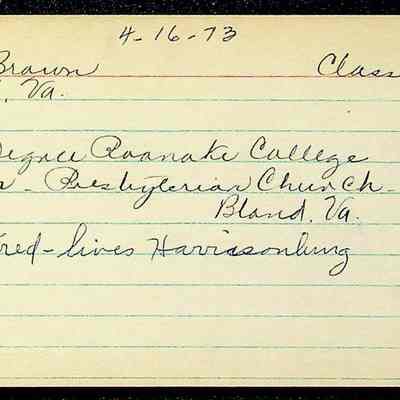 4-16-73
Brown Class
Va.
Degree Roanoke College
- Presbyterian Church -
Bland, Va.
red - lives Harrisonburg